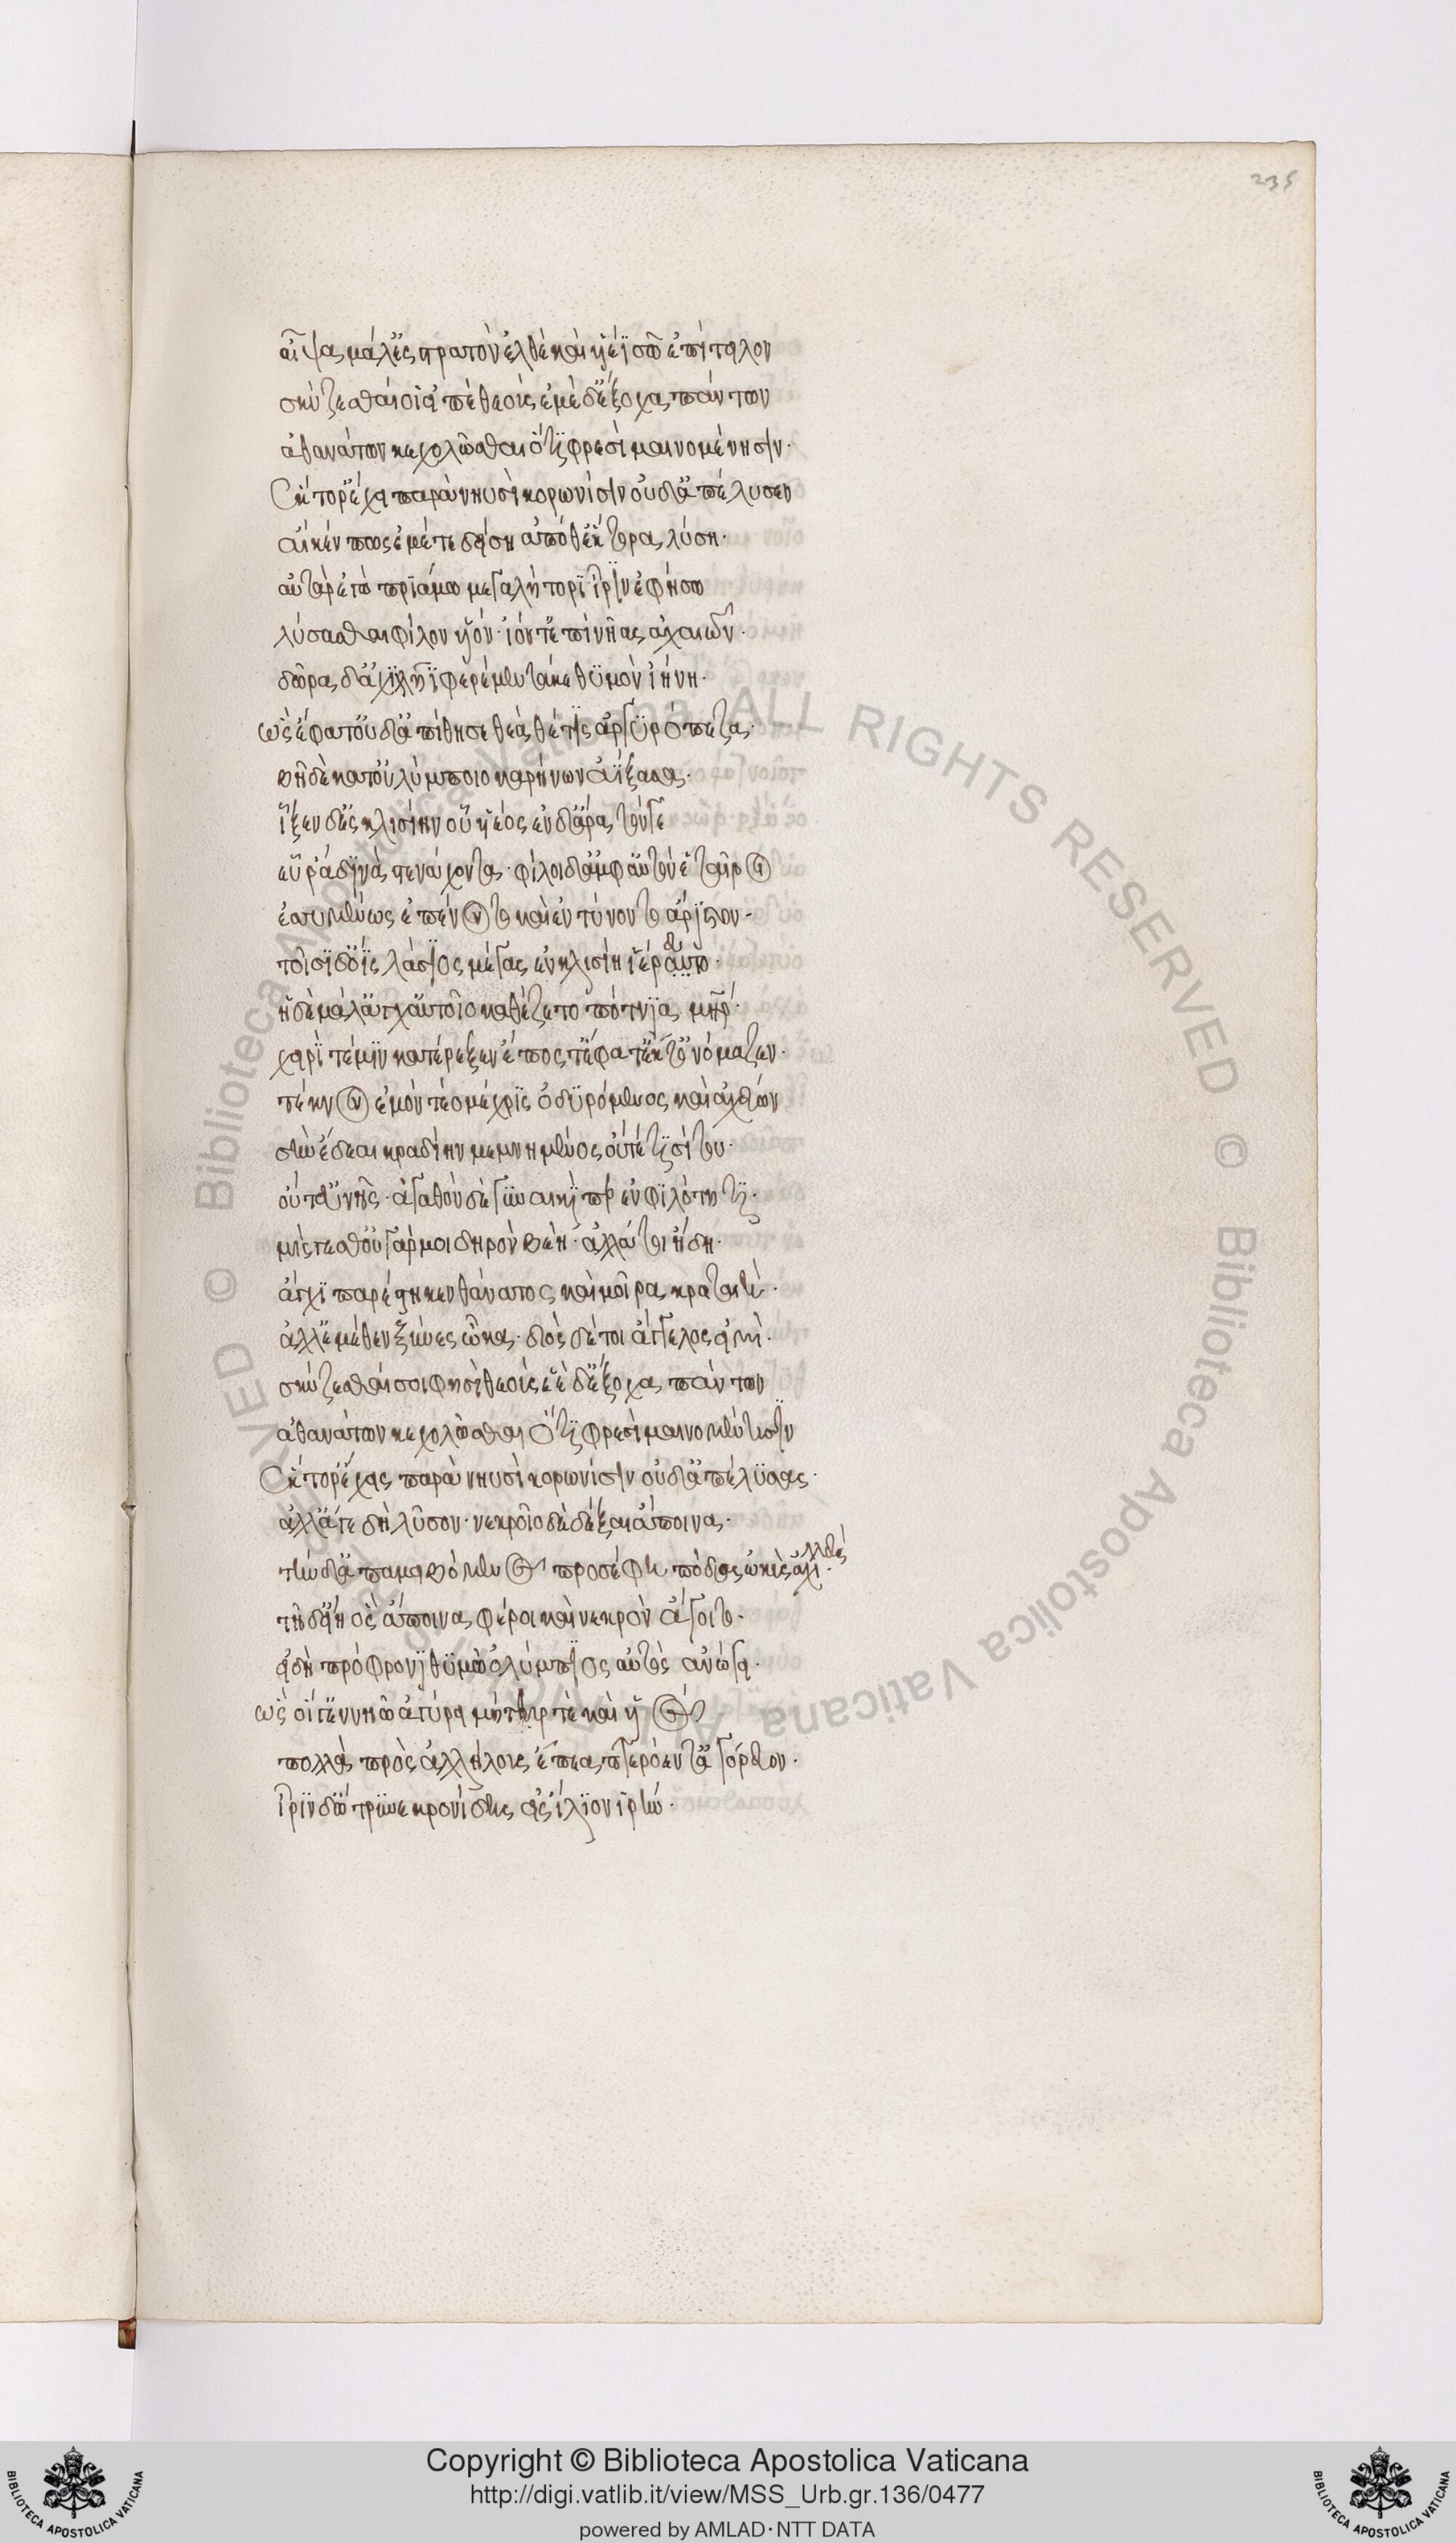 235
αἶψα μάλ' ἐς στρατὸν ἐλθὲ καὶ υἱέϊ σῶ ἐπίτειλον
σκύζεσθαί οἱ εἰπὲ θεοὺς ἐμὲ δ' ἔξοχα πάντων
ἀθανάτων κεχολῶσθαι ὅτι φρεσὶ μαινομένησιν·
Ἕκτορ' ἔχει παρὰ νηυσὶ κορωνίσιν οὐδ' ἀπέλυσεν
αἴ κέν πως ἐμέ τε δείση ἀπό θ' ἕκτορα λύση·
αὐτὰρ ἐγὼ πριάμω μεγαλήτορι ἶριν ἐφήσω
λύσασθαι φίλον υἱόν· ἰόντ' ἐπὶ νῆας ἀχαιῶν·
δῶρα δ' ἀχιλλῆϊ φερέμεν τά κε θυμὸν ἰήνη·
ὣς ἔφατ' οὐδ' ἀπίθησε θεὰ θέτις ἀργυρόπεζα·
βῆ δὲ κατ' οὐλύμποιο καρήνων ἀΐξασα·
ἷξεν δ' ἐς κλισίην οὗ υἱέος ἔνδ' ἄρα τόνγε
εὗρ' ἁδινὰ στενάχοντα· φίλοι δ' ἀμφ' αὐτὸν ἑταῖροι
ἐσσυμένως ἐπένοντο καὶ ἐντύνοντο ἄριστον·
τοῖσι δ' ὄϊς λάσιος μέγας ἐν κλισίη ἱέρευτο·
ἡ δὲ μάλ' ἄγχ' αὐτοῖο καθέζετο πότνια μήτηρ·
χειρί τέ μιν κατέρεξεν ἔπος τ' ἔφατ' ἔκ τ' ὀνόμαζεν·
τέκνον ἐμὸν τέο μέχρις ὀδυρόμενος καὶ ἀχεύων
σὴν ἔδεαι κραδίην μεμνημένος οὔτέ τι σίτου·
οὔτ' εὐνῆς· ἀγαθὸν δὲ γυναικί περ ἐν φιλότητι·
μίσγεσθ' οὐ γάρ μοι δηρὸν βέη· ἀλλά τοι ἤδη·
ἄγχι παρέστηκεν θάνατος καὶ μοῖρα κραταιή·
ἀλλ' ἐμέθεν ξύνες ὦκα· διὸς δέ τοι ἄγγελός εἰμι·
σκύζεσθαί σοι φησὶ θεοὺς ἑὲ δ' ἔξοχα πάντων
ἀθανάτων κεχολῶσθαι ὅτι φρεσὶ μαινομένησιν
Ἕκτορ' ἔχεις παρὰ νηυσὶ κορωνίσιν οὐδ' ἀπέλυσας·
ἀλλ' ἄγε δὴ λῦσον· νεκροῖο δὲ δέξαι ἄποινα·
τὴν δ' ἀπαμειβόμενος προσέφη πόδας ὠκὺς ἀχιλλεύς·
τῆδ' εἴη ὃς ἄποινα φέροι καὶ νεκρὸν ἄγοιτο·
εἰ δὴ πρόφρονι θυμῶ ὀλύμπιος αὐτὸς ἀνώγει·
ὣς οἵ γ' ἐν νηῶν ἀγύρει μήτηρ τε καὶ υἱός
πολλὰ πρὸς ἀλλήλους ἔπεα πτερόεντ' ἀγόρευον·
ἶριν δ' ὤτρυνε κρονίδης εἰς ἴλιον ἱρήν·
Copyright © Biblioteca Apostolica Vaticana
http://digi.vatlib.it/view/MSS_Urb.gr.136/0477
powered by AMLAD·NTT DATA